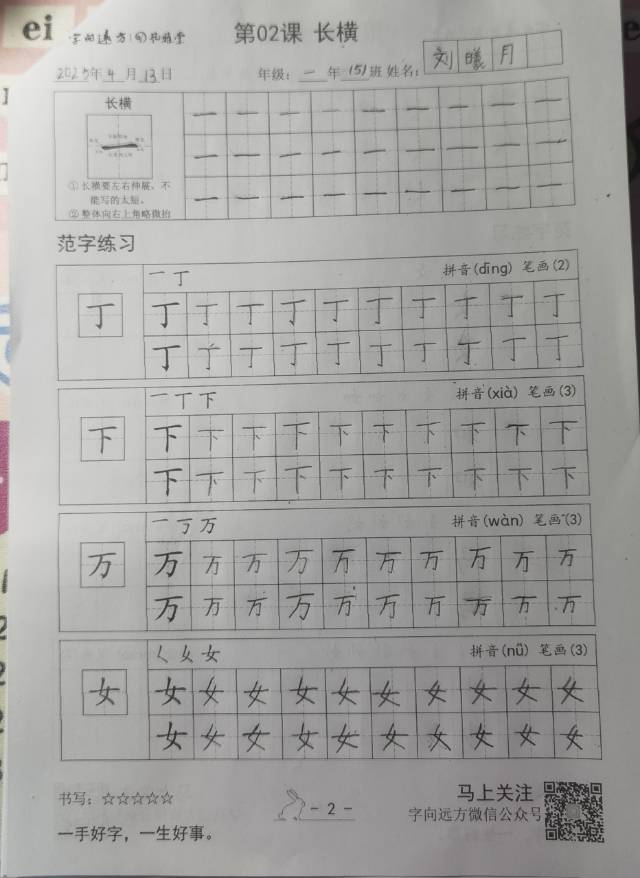 ei
第02课 长横
2025年4月13日 年级：一年(5)班 姓名：刘曦月
长横
一 一 一 一 一 一 一 一 一
一 一 一 一 一 一 一 一 一
一 一 一 一 一 一 一 一 一
① 长横要左右伸展，不
能写的太短。
② 整体向右上角略微抬
范字练习
一 丁 拼音(dīng) 笔画(2)
丁 丁 丁 丁 丁 丁 丁 丁 丁 丁 丁
丁 丁 丁 丁 丁 丁 丁 丁 丁 丁
一 丅 下 拼音(xià) 笔画(3)
下 下 下 下 下 下 下 下 下 下 下
下 下 下 下 下 下 下 下 下 下
一 丂 万 拼音(wàn) 笔画(3)
万 万 万 万 万 万 万 万 万 万 万
万 万 万 万 万 万 万 万 万 万
女 拼音(nǚ) 笔画(3)
女 女 女 女 女 女 女 女 女 女 女
女 女 女 女 女 女 女 女 女 女
书写：☆☆☆☆☆
- 2 -
马上关注
字向远方微信公众号
一手好字，一生好事。